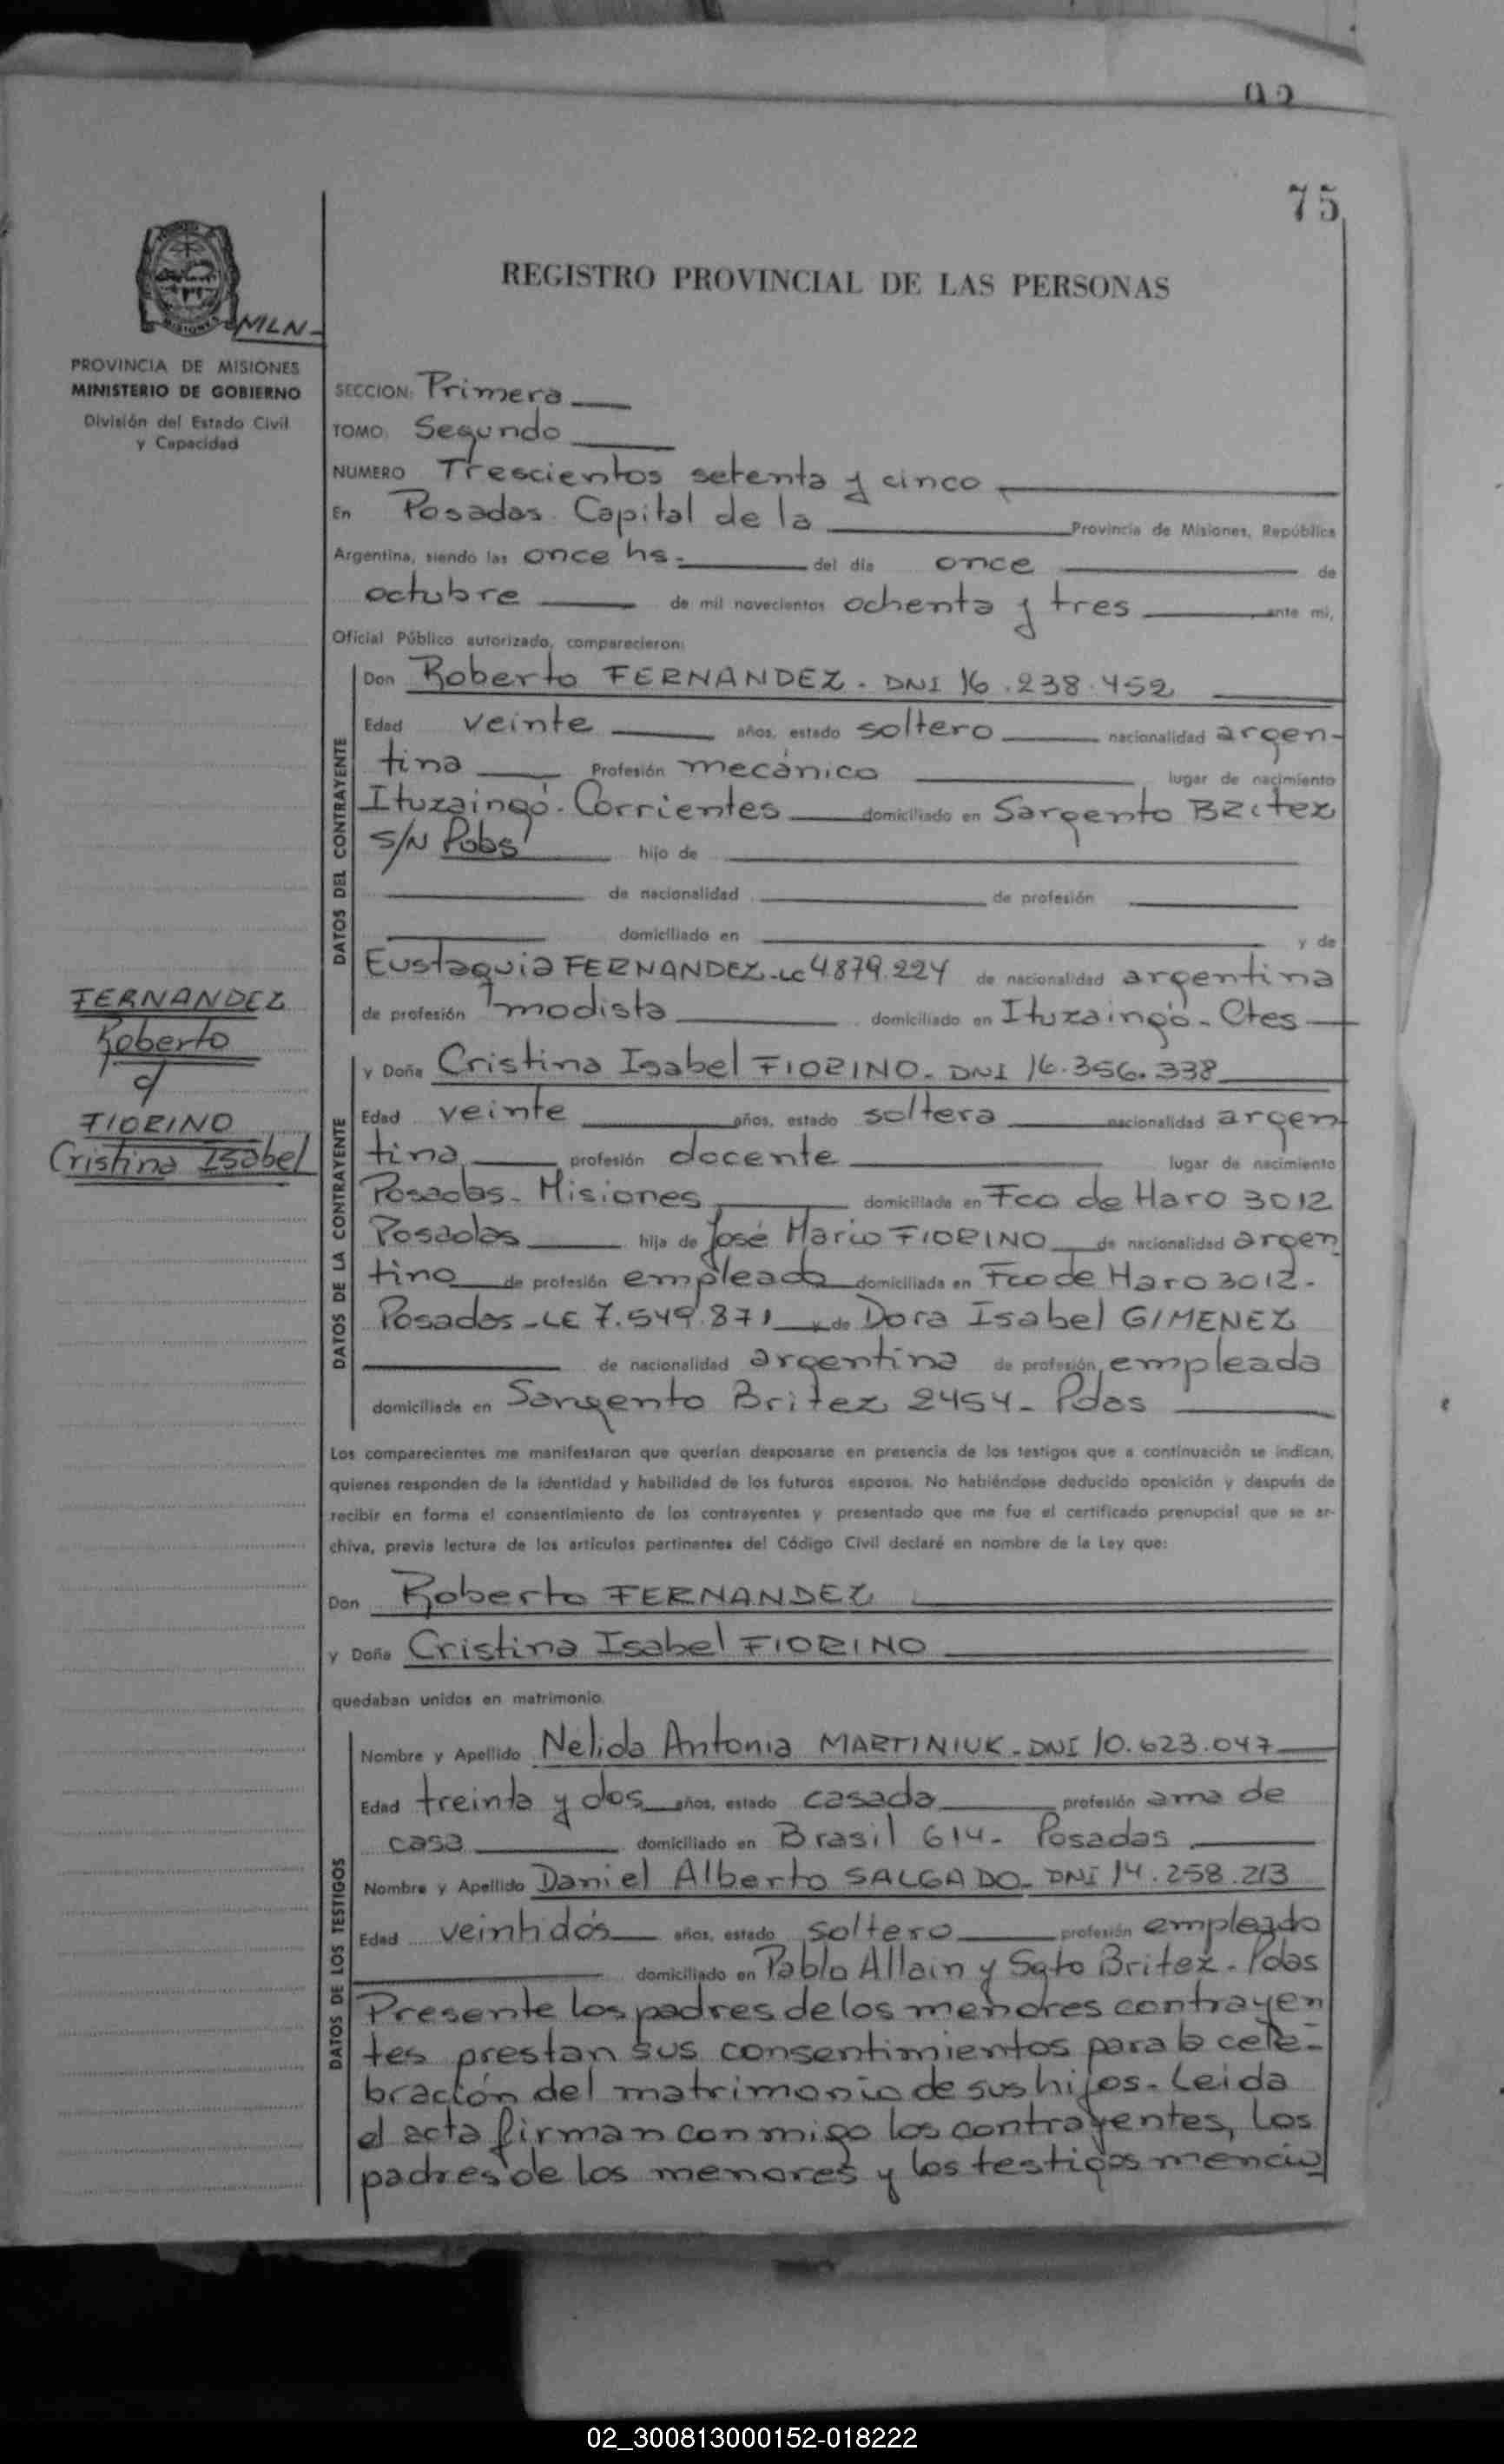 75
REGISTRO PROVINCIAL DE LAS PERSONAS
MISIONES
MLN-
PROVINCIA DE MISIONES
MINISTERIO DE GOBIERNO
División del Estado Civil
y Capacidad
SECCION: Primera
TOMO: Segundo
NUMERO Trescientos setenta y cinco
En Posadas Capital de la Provincia de Misiones, República
Argentina, siendo las once hs. del día once de
octubre de mil novecientos ochenta y tres ante mi,
Oficial Público autorizado, comparecieron:
DATOS DEL CONTRAYENTE
Don Roberto FERNANDEZ. DNI 16.238.452
Edad veinte años, estado soltero nacionalidad argen-
tina Profesión mecánico lugar de nacimiento
Ituzaingó. Corrientes domiciliado en Sargento BRitez
S/N hijo de
de nacionalidad de profesión
domiciliado en y de
Eustaquia FERNANDEZ-LC 4.879.224 de nacionalidad argentina
de profesión modista domiciliado en Ituzaingó. Ctes
FERNANDEZ
Roberto
y
FIORINO
Cristina Isabel
DATOS DE LA CONTRAYENTE
y Doña Cristina Isabel FIORINO. DNI 16.356.338
Edad veinte años, estado soltera nacionalidad argen
tina profesión docente lugar de nacimiento
Posadas. Misiones domiciliada en Fco de Haro 3012
Posadas hija de José Mario FIORINO de nacionalidad argen
tino de profesión empleado domiciliada en Fco de Haro 3012-
Posadas-LE 7.549.871 y de Dora Isabel GIMENEZ
de nacionalidad argentina de profesión empleada
domiciliada en Sargento Britez 2454- Pdas
Los comparecientes me manifestaron que querían desposarse en presencia de los testigos que a continuación se indican,
quienes responden de la identidad y habilidad de los futuros esposos. No habiéndose deducido oposición y después de
recibir en forma el consentimiento de los contrayentes y presentado que me fue el certificado prenupcial que se ar-
chiva, previa lectura de los artículos pertinentes del Código Civil declaré en nombre de la Ley que:
Don Roberto FERNANDEZ
y Doña Cristina Isabel FIORINO
quedaban unidos en matrimonio.
DATOS DE LOS TESTIGOS
Nombre y Apellido Nelida Antonia MARTINIUK. DNI 10.623.047
Edad treinta y dos años, estado casada profesión ama de
casa domiciliado en Brasil 614- Posadas
Nombre y Apellido Daniel Alberto SALGADO. DNI 14.258.213
Edad veintidós años, estado soltero profesión empleado
domiciliado en Pablo Allain y Sgto Britez. Pdas
Presente los padres de los menores contrayen
tes prestan sus consentimientos para la cele-
bración del matrimonio de sus hijos. Leida
el acta firman conmigo los contrayentes, los
padres de los menores y los testigos mencio
02_300813000152-018222